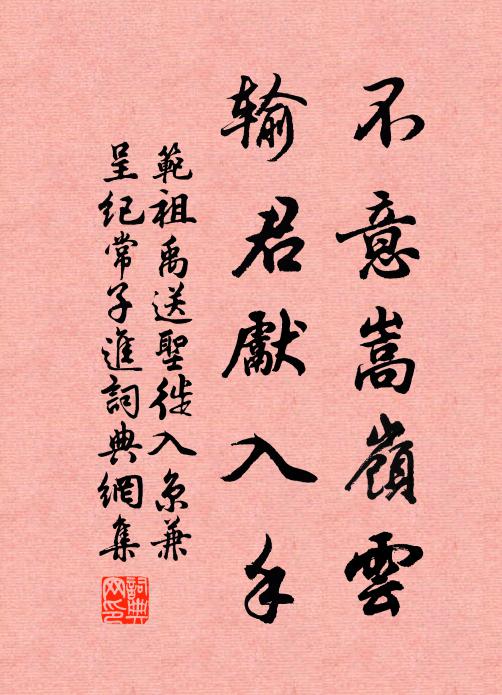 不意嵩嶺雲
輸君獻入手
範祖禹送聖徙入京兼
呈纪常子進詞典網集
詞典网印